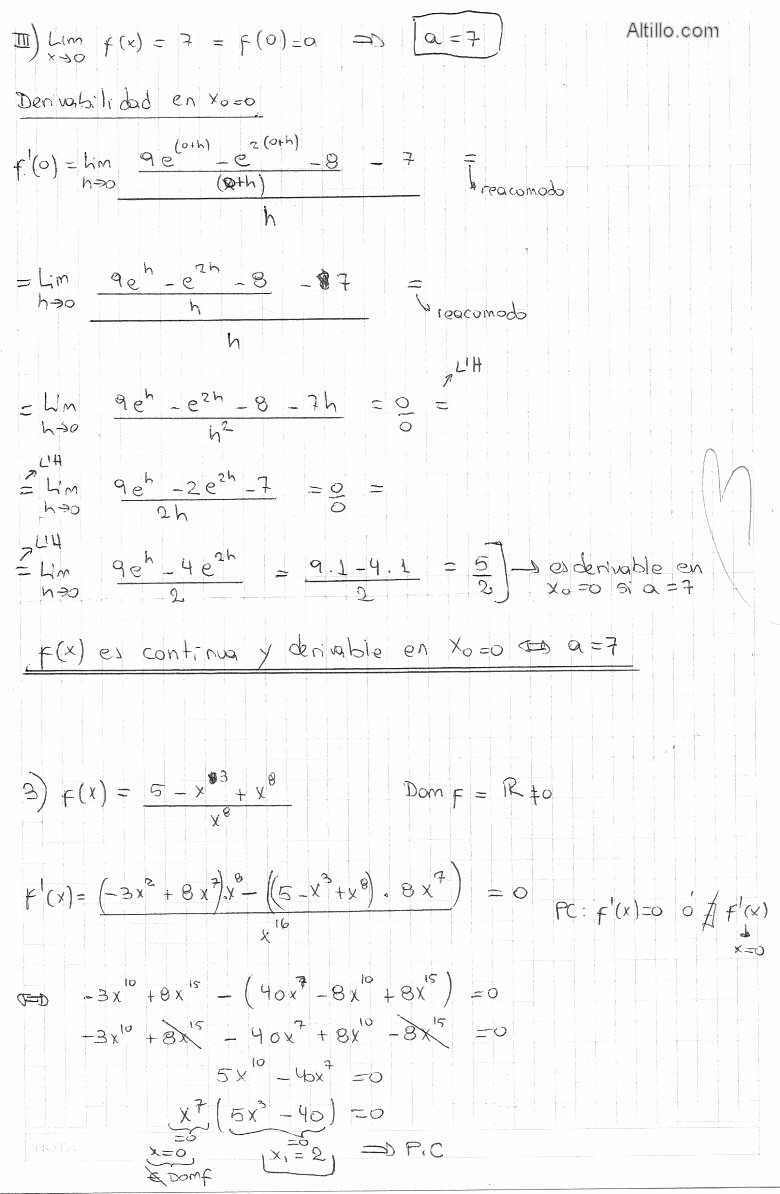 III) Lim x→0 f(x) = 7 = f(0) = a ⇒ a = 7
Altillo.com
Derivabilidad en x₀=0
f'(0) = Lim h→0 ((9e^(0+h) - e^2(0+h) - 8)/(0+h) - 7)/h = reacomodo
= Lim h→0 ((9e^h - e^2h - 8)/h - 7)/h = reacomodo
= Lim h→0 (9e^h - e^2h - 8 - 7h)/h² = 0/0 = L'H
= L'H Lim h→0 (9e^h - 2e^2h - 7)/2h = 0/0 =
= L'H Lim h→0 (9e^h - 4e^2h)/2 = (9.1 - 4.1)/2 = 5/2] → es derivable en
x₀=0 si a=7
f(x) es continua y derivable en x₀=0 ⇔ a=7
3) f(x) = (5 - x³ + x⁸)/x⁸ Dom f = ℝ≠0
f'(x) = ((-3x² + 8x⁷).x⁸ - ((5 - x³ + x⁸) . 8x⁷)/x¹⁶ = 0 PC: f'(x)=0 ó ∄ f'(x)
x=0
⇔ -3x¹⁰ + 8x¹⁵ - (40x⁷ - 8x¹⁰ + 8x¹⁵) = 0
-3x¹⁰ + 8x¹⁵ - 40x⁷ + 8x¹⁰ - 8x¹⁵ = 0
5x¹⁰ - 40x⁷ = 0
x⁷ (5x³ - 40) = 0
=0 =0
x=0 x₁ = 2 ⇒ P.C
∉ Domf